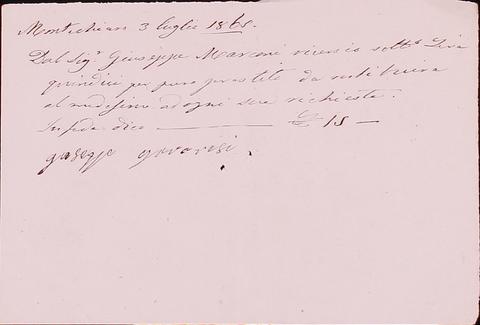 Montichiari 3 luglio 1865.
Dal Sig.r Giuseppe Marconi ricevo sotto Lire
quindici per puro prestito da restituirsi
al medesimo ad ogni sua richiesta.
In fede dico ——— £ 15 —
giuseppe